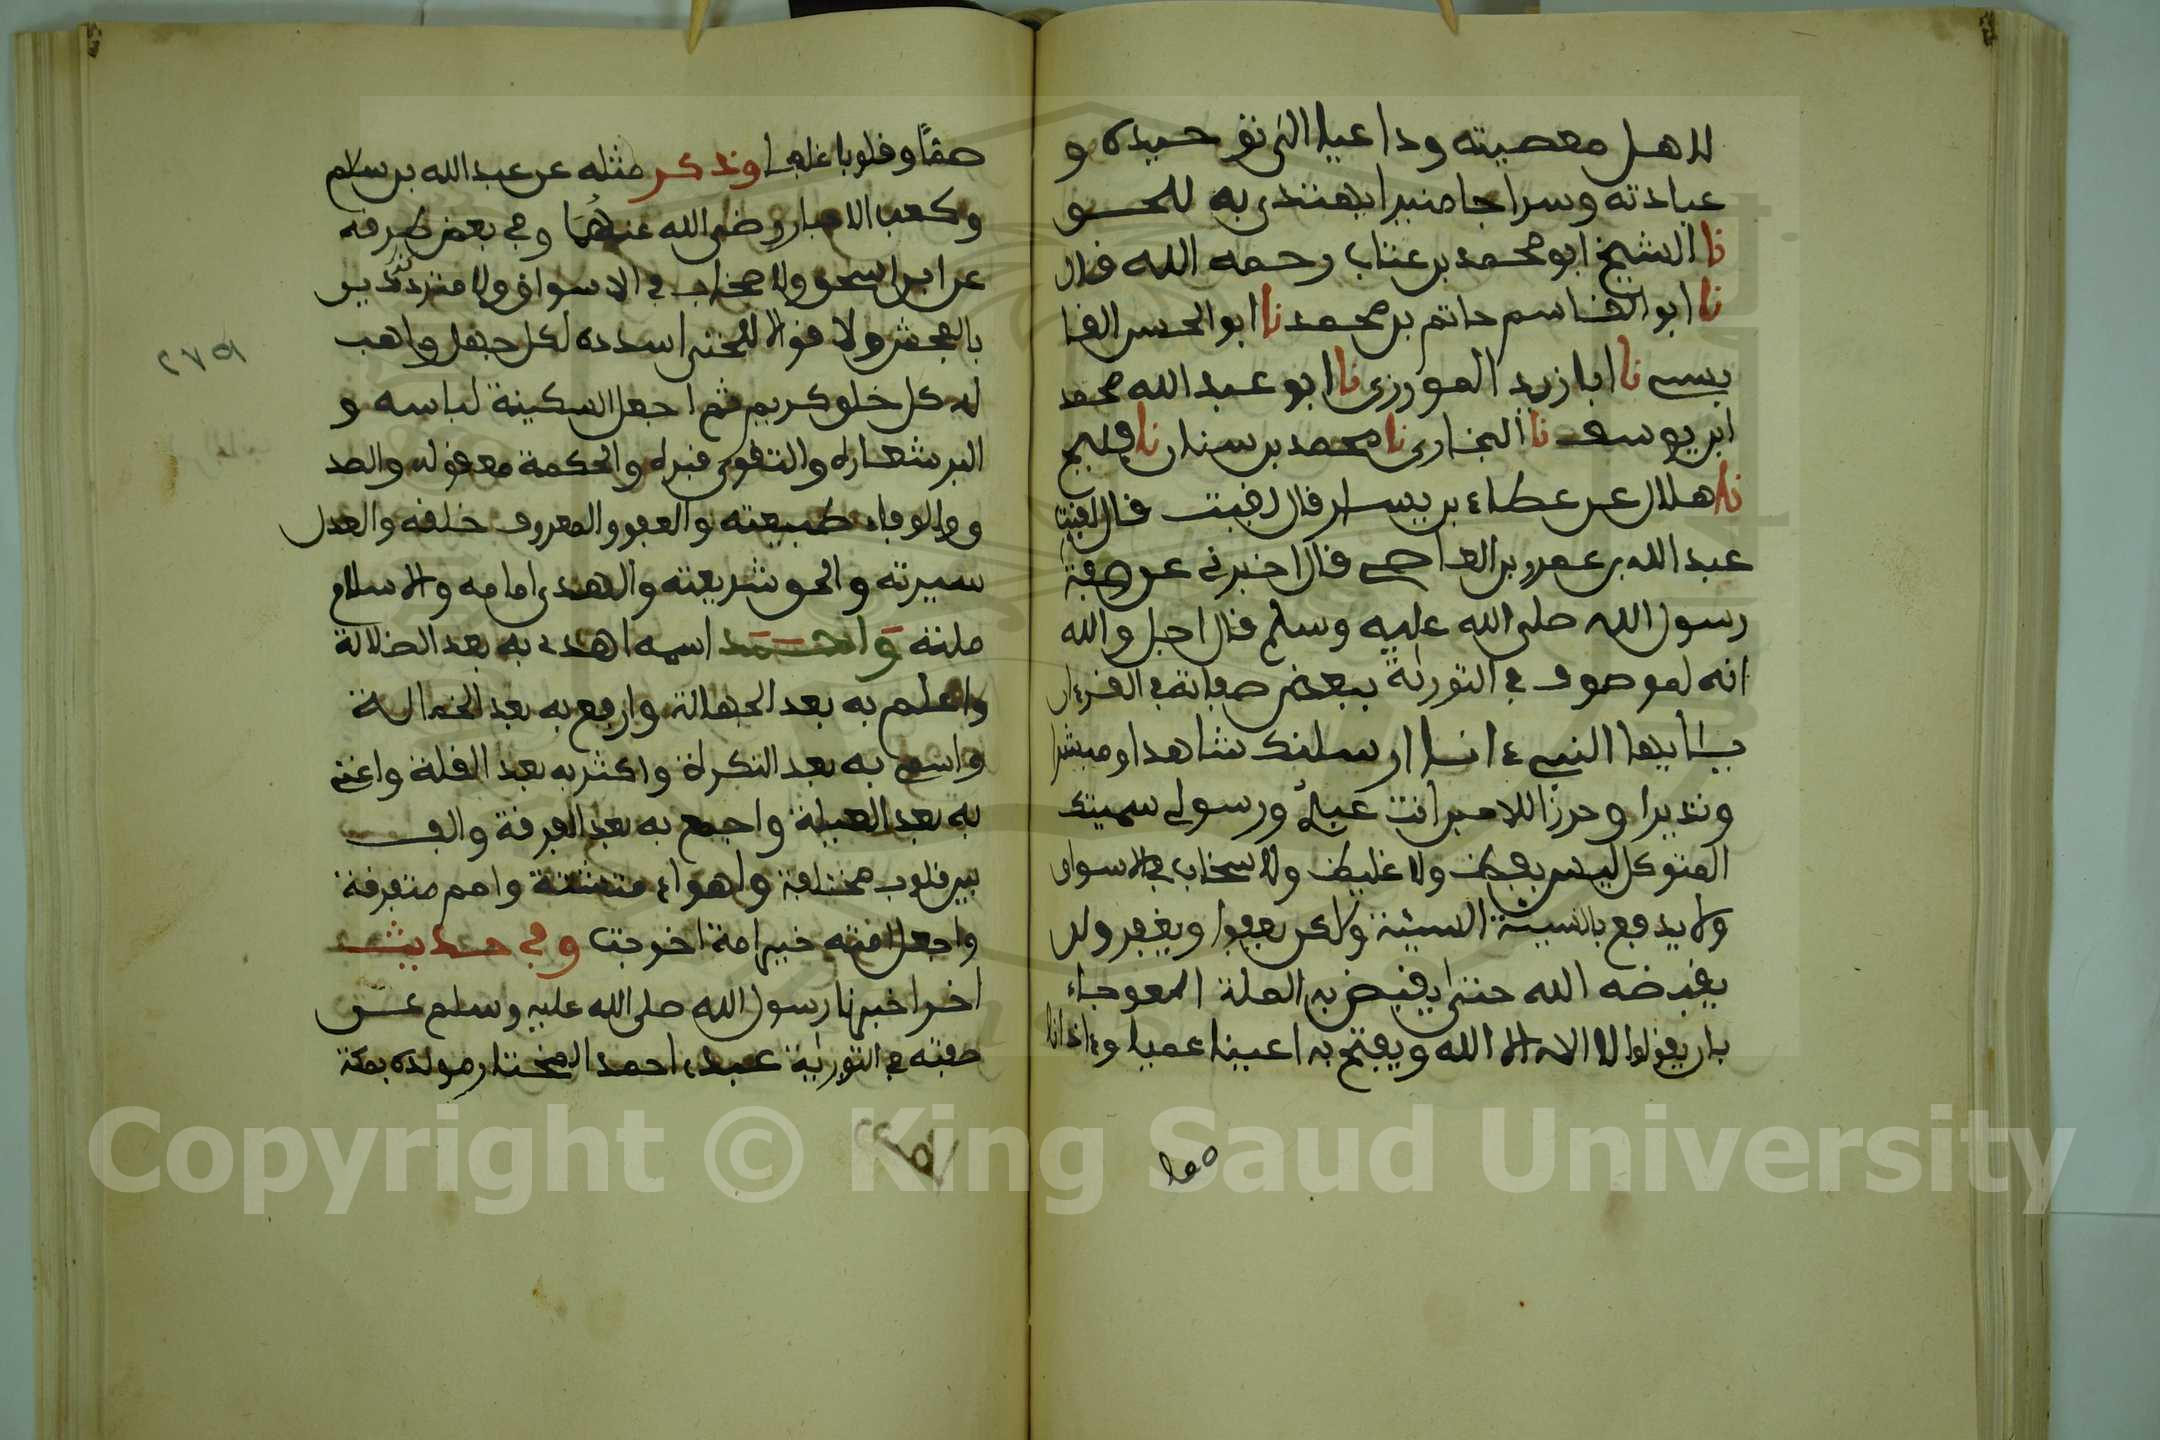 لاهل معصيته وداعيا الى توحيده و
عبادته وسراجا منيرا يهتدى به للحق
نا الشيخ ابو محمد بن عتاب رحمه الله قال
نا ابو القاسم حاتم بن محمد نا ابو الحسن القا
بسى نا ابا زيد المروزى نا ابو عبد الله محمد
ابن يوسف نا البخارى نا محمد بن سنان نا فليح
نا هلال عن عطاء بن يسار قال لقيت
عبد الله بن عمرو بن العاصى قال اخبرنى عن صفة
رسول الله صلى الله عليه وسلم قال اجل والله
انه لموصوف في التورىة ببعض صفاته في القرءان
يايها النبىء انا ارسلنك شاهدا ومبشرا
ونذيرا وحرزا للاميين انت عبدى ورسولى سميتك
المتوكل ليس بفظ ولا غليظ ولا سخاب في الاسواق
ولا يدفع بالسيئة السيئة ولكن يعفوا ويغفر ولن
يقبضه الله حتى يقيض به الملة العوجاء
بان يقولوا لا اله الا الله ويفتح به اعينا عميا وءاذانا
صما وقلوبا غلفا وذكر مثله عن عبد الله بن سلام
وكعب الاحبار رضى الله عنهما وفي بعض طرقه
عن ابن اسحق ولا صخاب في الاسواق ولا متزين
بالفحش ولا قوال للخنى اسدده لكل جميل واهب
له كل خلق كريم ثم اجعل السكينة لباسه و
البر شعاره والتقوى ضميره والحكمة معقوله والصد
ق والوفاء طبيعته والعفو والمعروف خلقه والعدل
سيرته والحق شريعته والهدى امامه والاسلام
ملته واحمد اسمه اهدى به بعد الضلالة
واعلم به بعد الجهالة وارفع به بعد الخمالة
واسمى به بعد النكرة واكثر به بعد القلة واغنى
به بعد العيلة واجمع به بعد الفرقة والف
بين قلوب مختلفة واهواء متشتتة وامم متفرقة
واجعل امته خير امة اخرجت وفي حديث
اخر اخبرنا رسول الله صلى الله عليه وسلم عن
صفته في التورىة عبدى احمد المختار مولده بمكة
Copyright © King Saud University